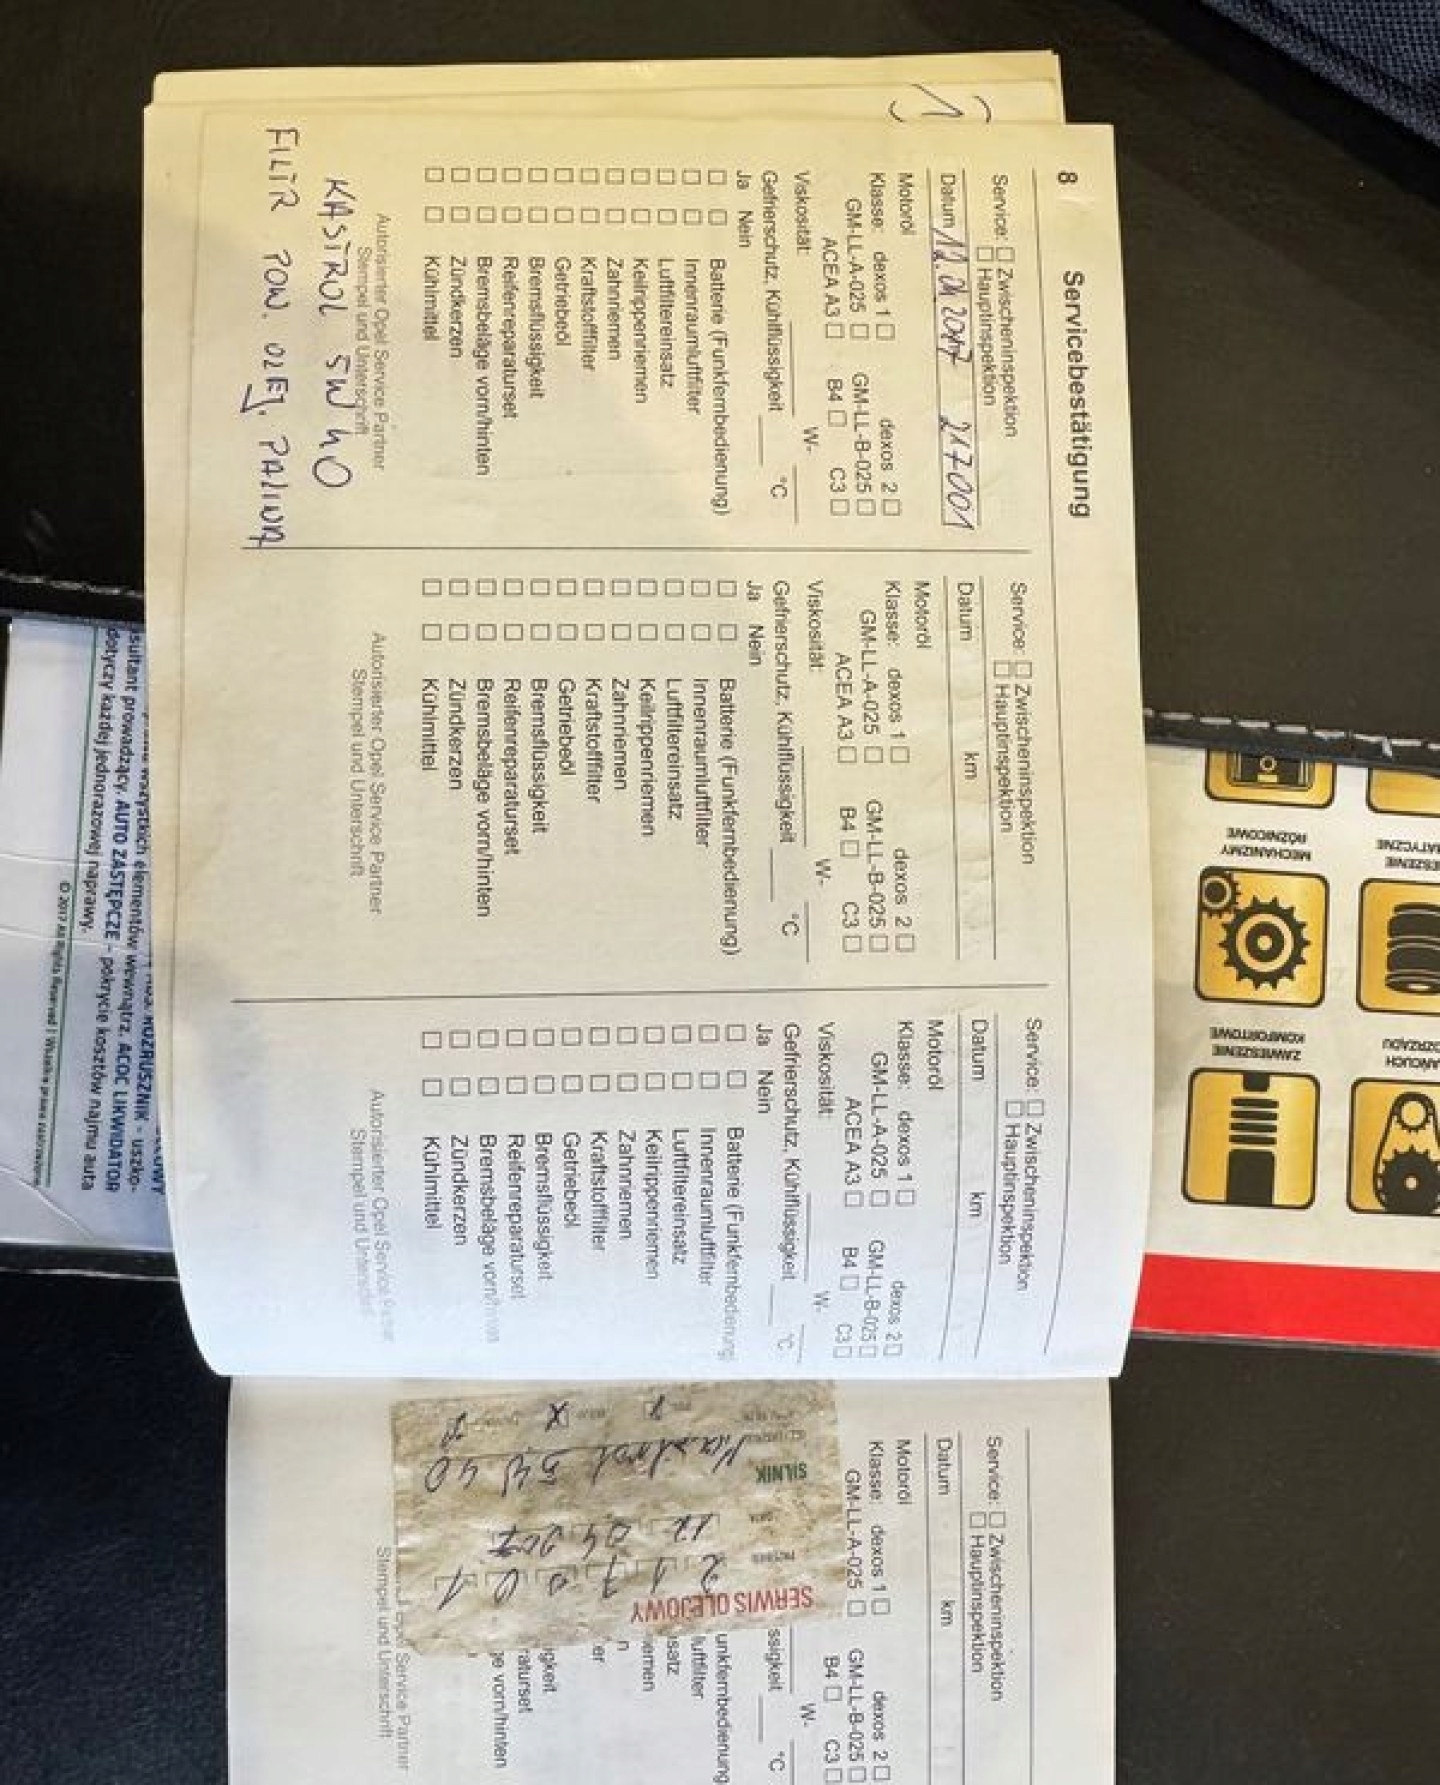 8 Servicebestätigung
Service: □ Zwischeninspektion
□ Hauptinspektion
Datum 12.04.2017 217001
Motoröl
Klasse: dexos 1 □ dexos 2 □
GM-LL-A-025 □ GM-LL-B-025 □
ACEA A3 □ B4 □ C3 □
Viskosität: W-
Gefrierschutz, Kühlflüssigkeit °C
Ja Nein
□ □ Batterie (Funkfernbedienung)
□ □ Innenraumluftfilter
□ □ Luftfiltereinsatz
□ □ Keilrippenriemen
□ □ Zahnriemen
□ □ Kraftstofffilter
□ □ Getriebeöl
□ □ Bremsflüssigkeit
□ □ Reifenreparaturset
□ □ Bremsbeläge vorn/hinten
□ □ Zündkerzen
□ □ Kühlmittel
Autorisierter Opel Service Partner
Stempel und Unterschrift
KASTROL 5W40
FILTR POW. OLEJ, PALIWA
Service: □ Zwischeninspektion
□ Hauptinspektion
Datum km
Motoröl
Klasse: dexos 1 □ dexos 2 □
GM-LL-A-025 □ GM-LL-B-025 □
ACEA A3 □ B4 □ C3 □
Viskosität: W-
Gefrierschutz, Kühlflüssigkeit °C
Ja Nein
□ □ Batterie (Funkfernbedienung)
□ □ Innenraumluftfilter
□ □ Luftfiltereinsatz
□ □ Keilrippenriemen
□ □ Zahnriemen
□ □ Kraftstofffilter
□ □ Getriebeöl
□ □ Bremsflüssigkeit
□ □ Reifenreparaturset
□ □ Bremsbeläge vorn/hinten
□ □ Zündkerzen
□ □ Kühlmittel
Autorisierter Opel Service Partner
Stempel und Unterschrift
Service: □ Zwischeninspektion
□ Hauptinspektion
Datum km
Motoröl
Klasse: dexos 1 □ dexos 2 □
GM-LL-A-025 □ GM-LL-B-025 □
ACEA A3 □ B4 □ C3 □
Viskosität: W-
Gefrierschutz, Kühlflüssigkeit °C
Ja Nein
□ □ Batterie (Funkfernbedienung)
□ □ Innenraumluftfilter
□ □ Luftfiltereinsatz
□ □ Keilrippenriemen
□ □ Zahnriemen
□ □ Kraftstofffilter
□ □ Getriebeöl
□ □ Bremsflüssigkeit
□ □ Reifenreparaturset
□ □ Bremsbeläge vorn/hinten
□ □ Zündkerzen
□ □ Kühlmittel
Autorisierter Opel Service Partner
Stempel und
Service: □ Zwischeninspektion
□ Hauptinspektion
Datum km
Motoröl
Klasse: dexos 1 □ dexos 2 □
GM-LL-A-025 □ GM-LL-B-025 □
B4 □ C3 □
W-
ssigkeit °C
unkfernbedienung
luftfilter
satz
iemen
n
er
igkeit
raturset
ge vorn/hinten
Opel Service Partner
Stempel und Unterschrift
SERWIS OLEJOWY
217001
DATA
12 04 2017
SILNIK
Kastrol 5W40
wszystkich elementów wewnątrz. ROZRUSZNIK - uszko-
sultant prowadzący. AUTO ZASTĘPCZE - pokrycie kosztów najmu auta
dotyczy każdej jednorazowej naprawy. ACOC LIKWIDATOR
© 2017 All Rights Reserved | Wszelkie prawa zastrzeżone
MECHANIZMY
RÓŻNICOWE
ZAWIESZENIE
KOMFORTOWE